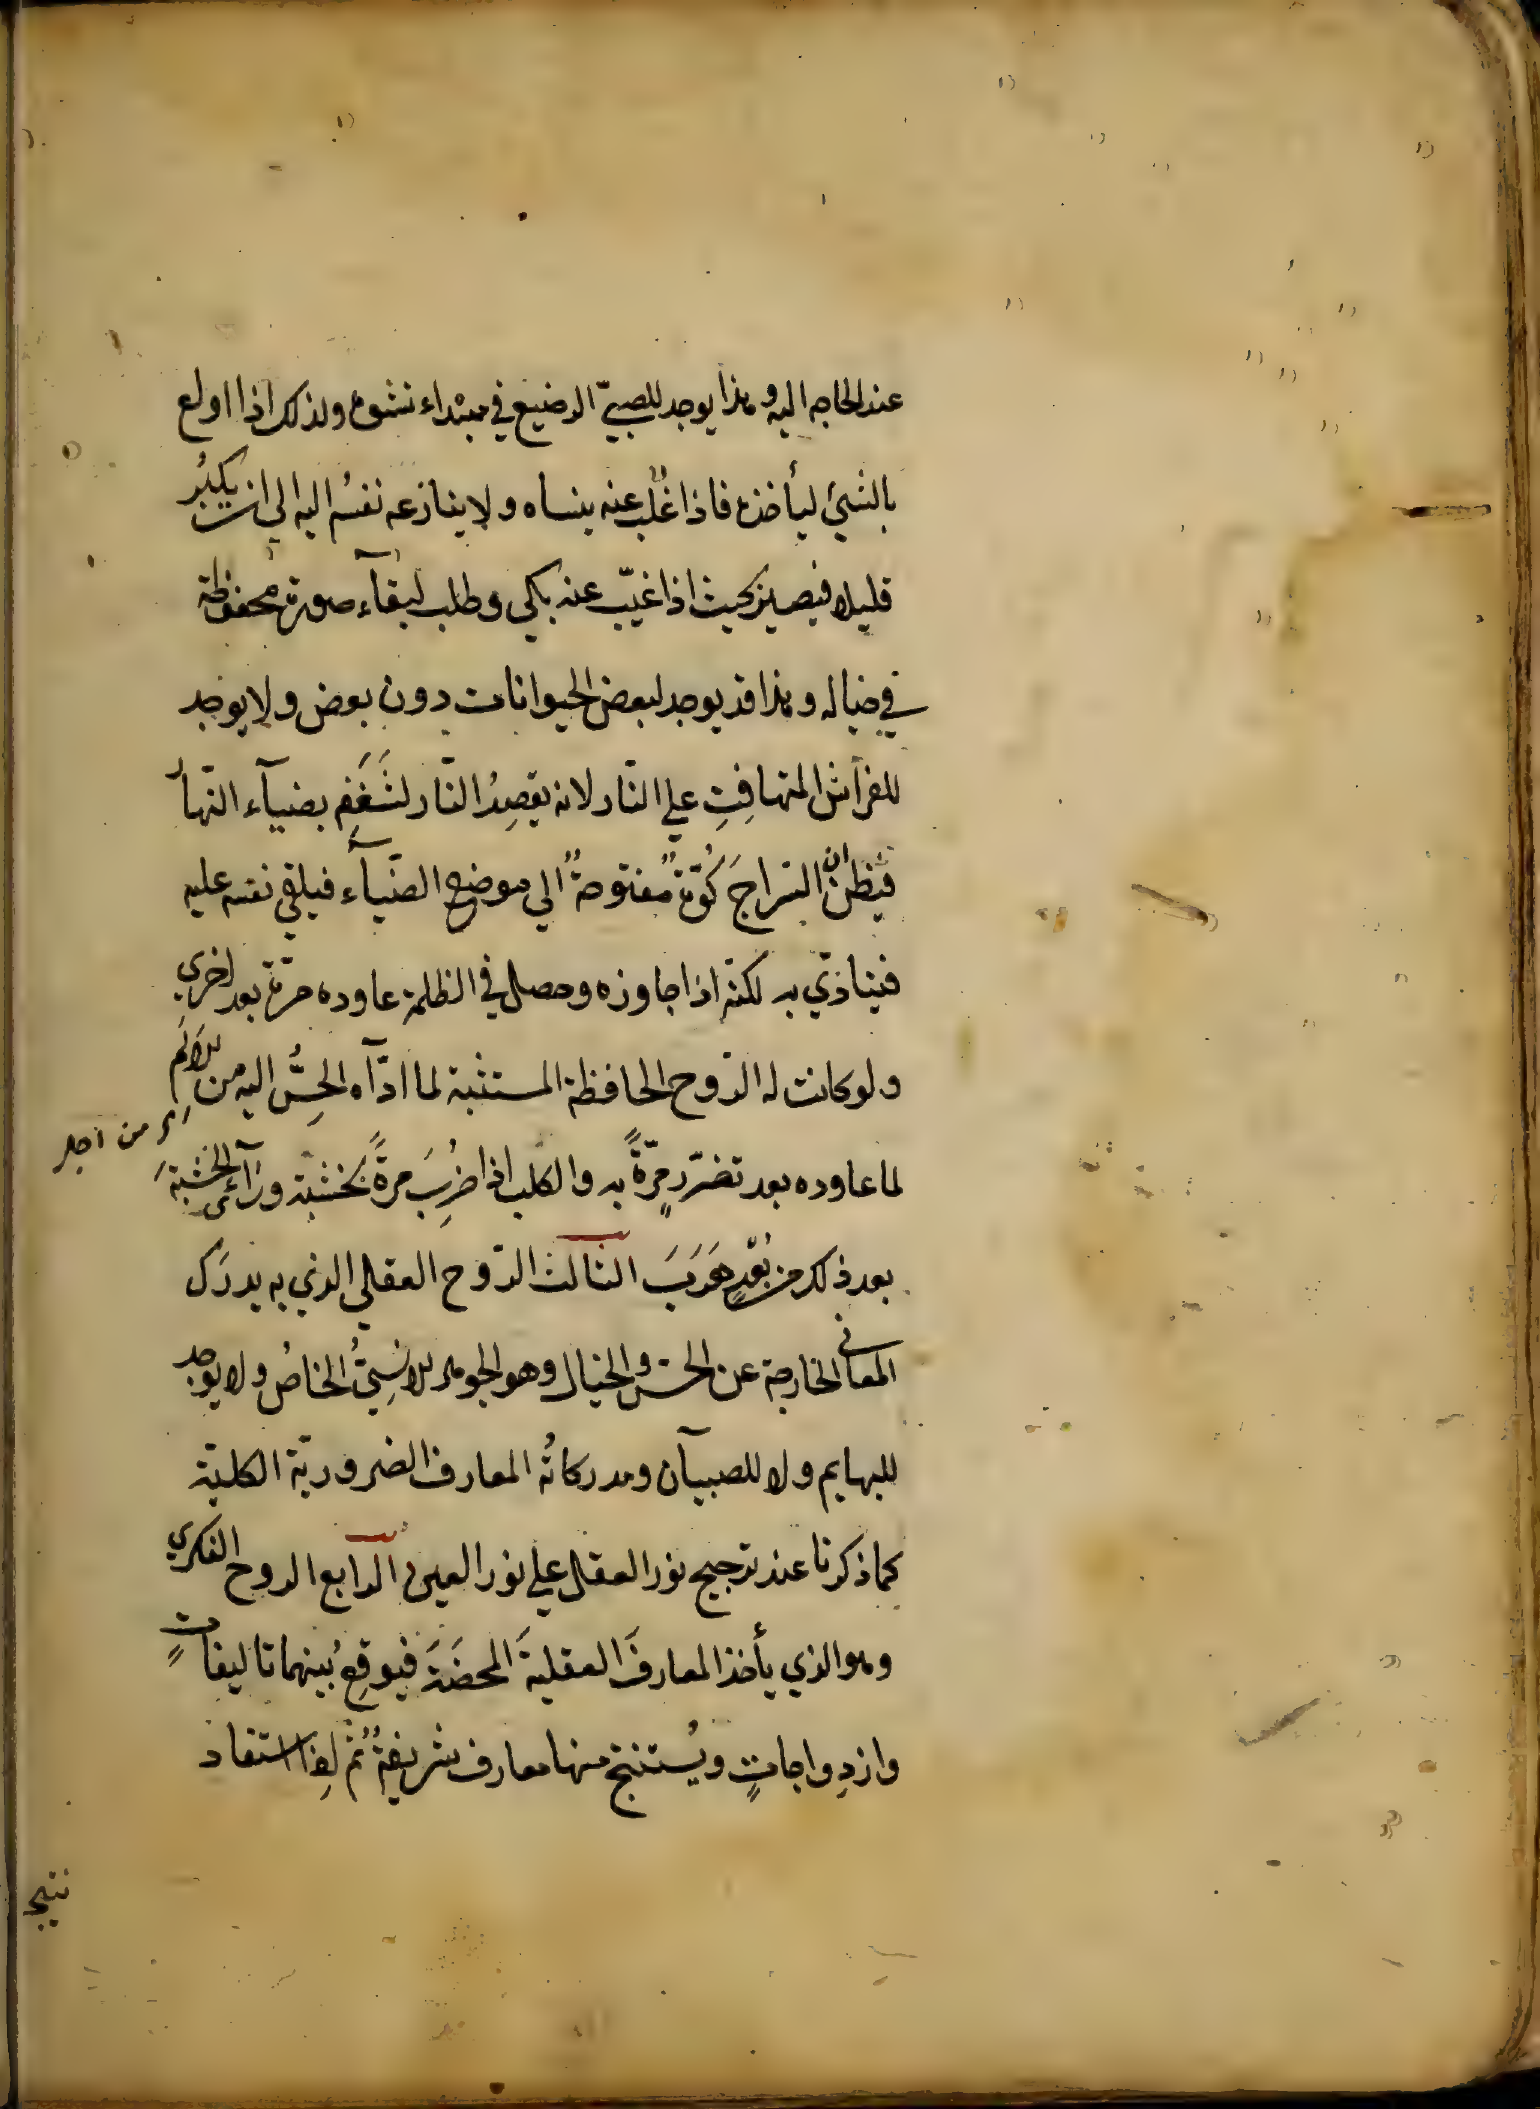 عند الحاجه اليه وهذا يوجد للصبيّ الرضيع في مبتداء نشوه ولذلك اذا اولع
بالشيئ ليأخذه فاذا غُيّب عنه ينساه ولا ينازعه نفسُه اليه الى ان يكبُر
قليلا فيصير بحيث اذا غيّب عنه بكي وطلب لبقآء صورته محفوظة
في خياله وهذا قد يوجد لبعض الحيوانات دون بعض ولا يوجد
للفراش المتهافِتِ علي النّار لانه يقصِدُ النّار لشَغَفِه بضيآء النّهار
فيظن ان السّراجَ كُوّةٌ مفتوحةٌ الي موضع الضّيآء فيلقي نفسه عليه
فيتاذّي به لكنّه اذا جاوزه وحصل في الظلمة عاوده مرّة بعد اخري
ولو كانت له الرّوح الحافظة المستثبتة لما ادّآه الحِسُّ اليه من الالَم
اي من اجل
لما عاوده بعد تضرّره مرّةً به والكلب اذا ضُرِبَ مرةً بخشبة ورَآئ الخشبةَ
بعد ذلك من بُعْدٍ هَرَبَ الثالث الرّوح العقلي الذي به يدرَك
المعاني الخارجة عن الحس والخيال وهو الجوهر الانسِيُّ الخاصُ ولا يوجد
للبهايم ولا للصبيآن ومدركاتُه المعارف الضروريّة الكليّة
كما ذكرنا عند ترجيح نور العقل علي نور العين الرابع الروح الفكري
وهو الذي يأخذ المعارفَ العقليةَ المحضَةَ فيوقِعُ بينهما تاليفاتٍ
وازدِواجاتٍ ويُستنتج منها معارف شريفةٌ ثم اذا استفاد
نتيج